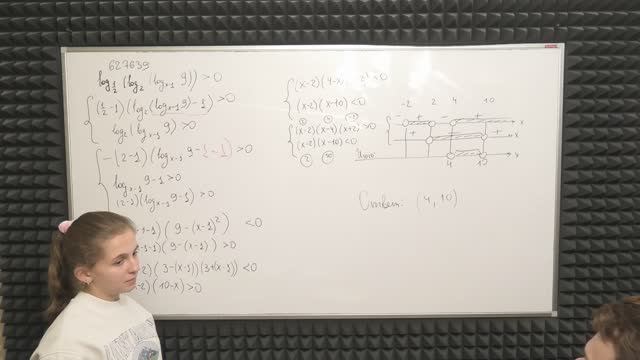 627639
log_{1/2}(log_2(log_{x-1} 9)) > 0
(1/2 - 1)(log_2(log_{x-1} 9) - 1) > 0
log_2(log_{x-1} 9) > 0
-(2-1)(log_{x-1} 9 - 2-1) > 0
log_{x-1} 9 - 1 > 0
(2-1)(log_{x-1} 9) > 0
-1-1)(9-(x-1)^2) < 0
-1-1)(9-(x-1)) > 0
-2)(3-(x-1))(3+(x-1)) < 0
-2)(10-x) > 0
(x-2)(4-x) < 0
(x-2)(x-10) < 0
(x-2)(x-4)(x+2) > 0
(x-2)(x-10) < 0
2 10
-2 2 4 10
- + - + x
+ - + x
Итого: x
4 10
Ответ: (4, 10)